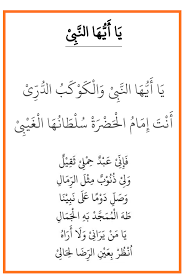 يَا أَيُّهَا النَّبِيْ
يَا أَيُّهَا النَّبِيْ وَالْكَوْكَبُ الدُّرِيْ
أَنْتَ إِمَامُ الْحَضْرَةْ سُلْطَانُهَا الْغَيْبِيْ
فَإِنِّي عَبْدٌ حِمْلِيْ ثَقِيْلٌ
وَلِيْ ذُنُوْبٌ مِثْلُ الرِّمَالِ
وَصَلِّ دَوْمًا عَلَى نَبِيِّنَا
طَهَ الْمُمَجَّدْ بَهِ الْجَمَالِ
يَا مَنْ يَرَانِيْ وَلَا أَرَاهُ
أُنْظُرْ بِعَيْنِ الرِّضَا لِحَالِيْ